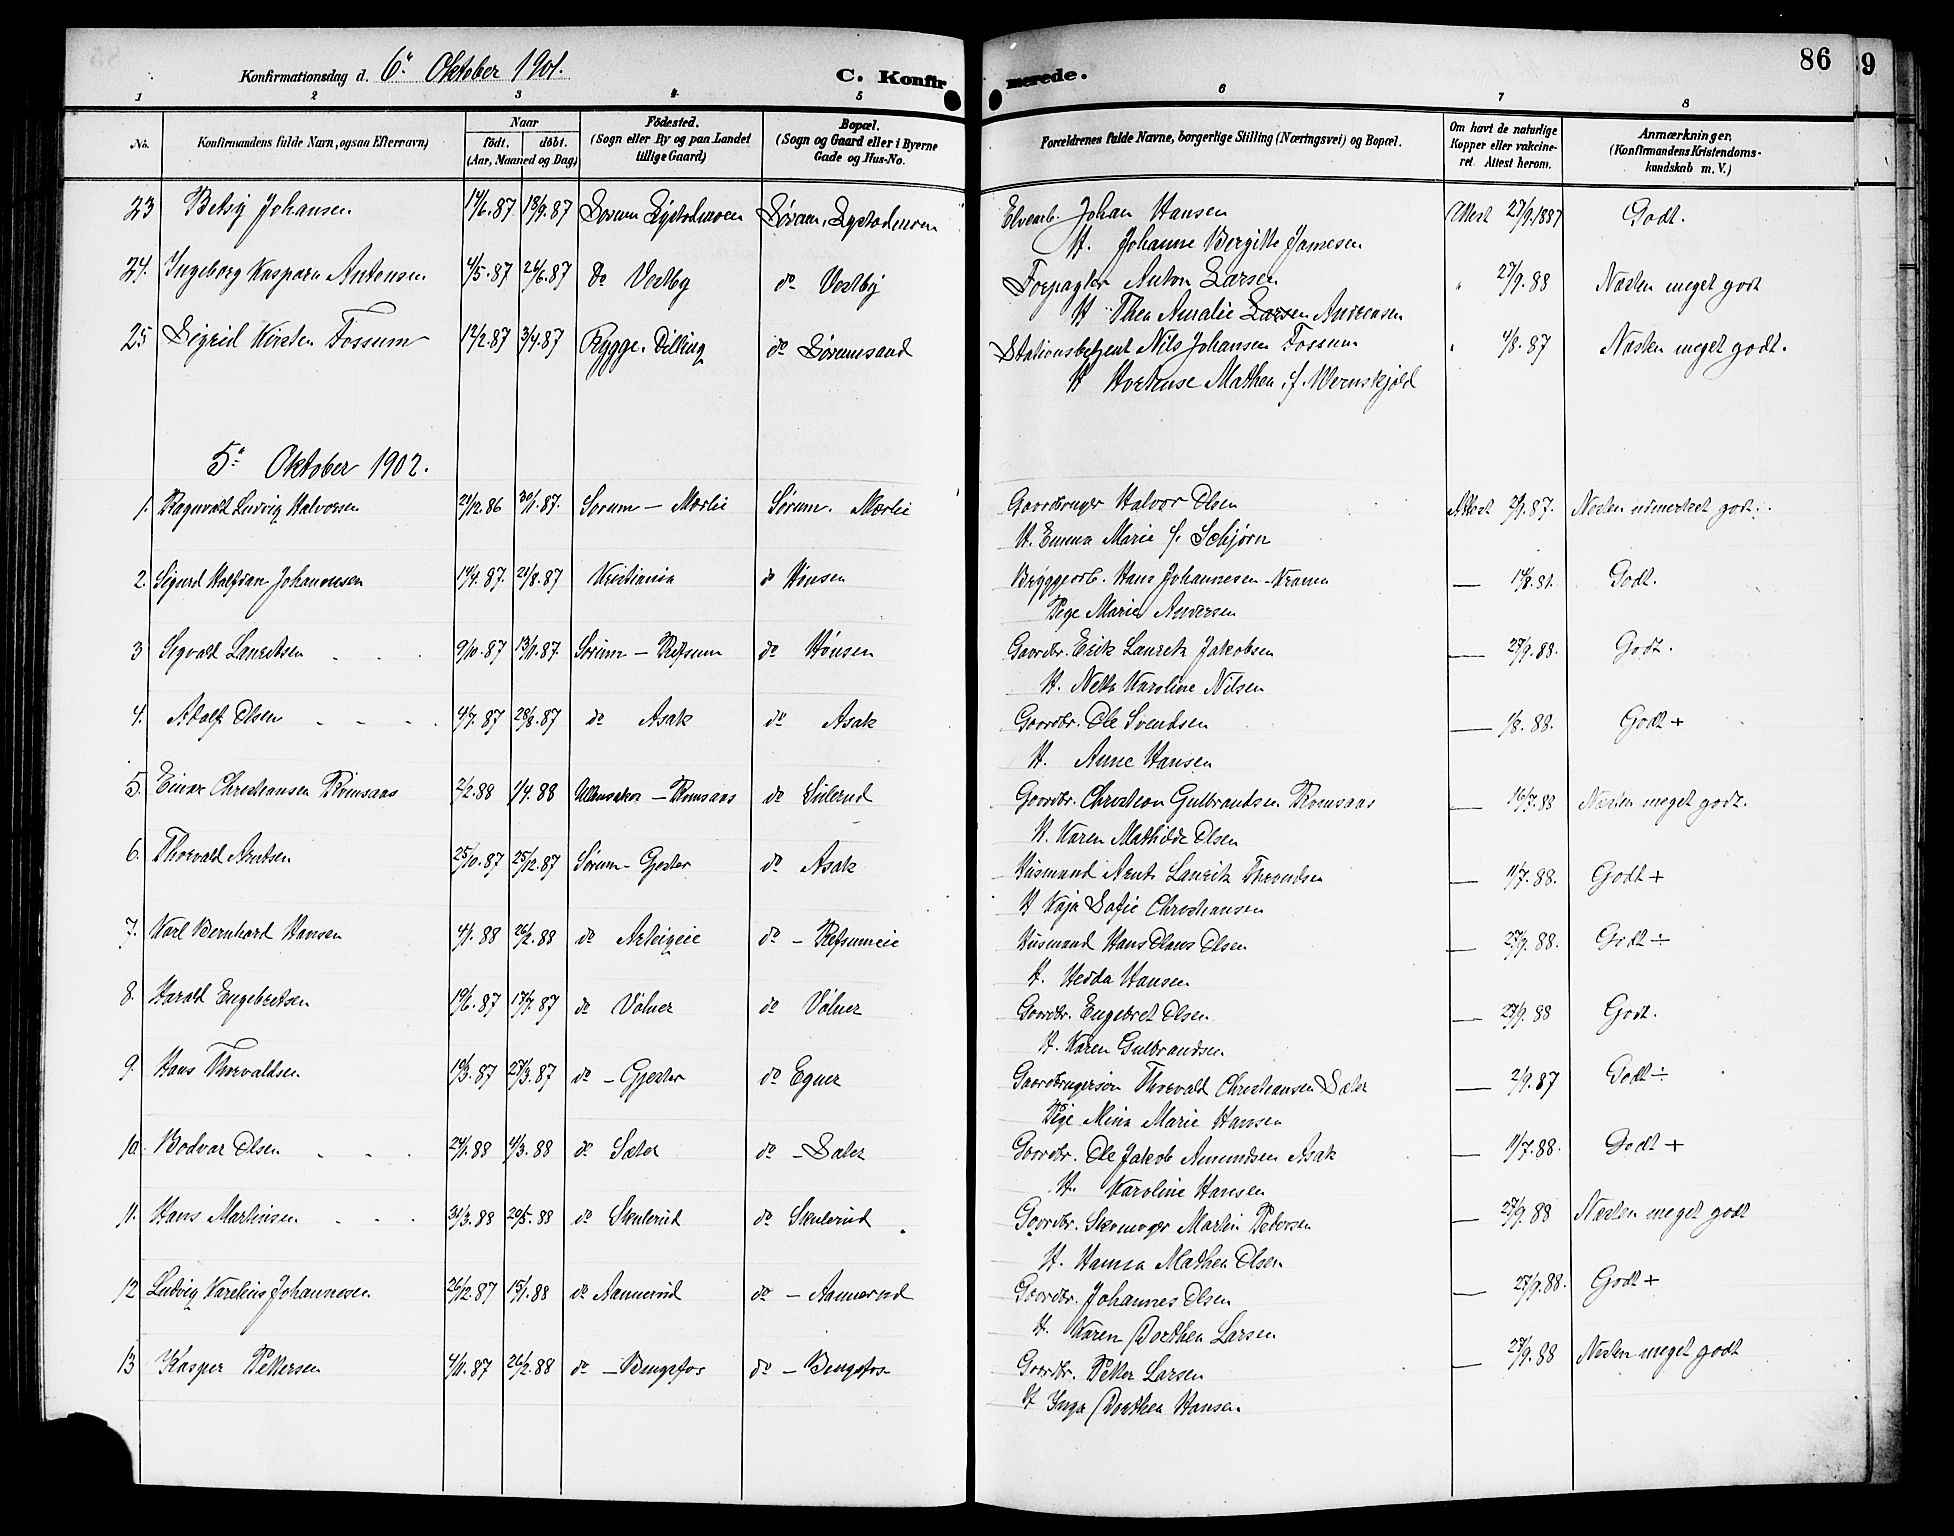 86
9
Konfirmationsdag d. 6te Oktober 1901.
C. Konfirmerede.
1 2 3 4 5 6 7 8
No.
Konfirmandens fulde Navn, ogsaa Efternavn)
Naar
født. døbt.
(Aar, Maaned og Dag)
Fødested.
(Sogn eller By og paa Landet
tillige Gaard)
Bopæl.
(Sogn og Gaard eller i Byerne
Gade og Hus-No.
Forældrenes fulde Navne, borgerlige Stilling (Næringsvei) og Bopæl.
Om havt de naturlige
Kopper eller vakcine-
ret Attest herom.
Anmærkninger.
(Konfirmandens Kristendoms-
kundskab m. V.)
23 Betsy Johansen 14/6.87 18/9.87 Sørum Lystadmoen Sørum, Lystadmoen Elvearb. Johan Hansen Attest 27/9.1887 Godt.
H. Johanne Bergitte Jamesen
24. Ingeborg Kaspara Antonsen 4/5.87 26/6.87 do Vestby do Vestby Forpagter Anton Larsen " 27/9.88 Næsten meget godt
H Thea Amalie Larsen Andreasen
25 Sigrid Kirsten Fossum 12/2.87 3/4.87 Rygge. Dilling do Sørumsand Stationsbetjent Nils Johansen Fossum " 4/8.87 Næsten meget godt.
H Hortense Mathea f. Wernskjold
5te Oktober 1902.
1. Ragnvald Ludvig Halvorsen 21/12.86 30/1.87. Sørum – Mærlie Sørum. Mærlie Gaardbruger Halvor Olsen Attest 2/9.87. Næsten udmerket godt.
H. Emma Marie f. Schjørn
2. Sigurd Halfdan Johannesen 14/4.87. 21/8.87 Kristiania do Hønsen Bryggearb. Hans Johannesen Godt.
Pige Marie Andersen
3 Sigvald Lauritsen 9/10.87 13/11.87. Sørum – Refsum do Hønsen Gaardbr. Erik Lauritz Jakobsen — 27/9.88. Godt.
H. Netta Karoline Nilsen
4. Adolf Olsen 4/7.87 28/8.87 do Asak do Asak Gaardbr. Ole Svendsen — 1/8.88. Godt +
H. Anne Hansen
5. Einar Christiansen Romsaas 2/2.88 1/4.88 Ullensaker – Romsaas do Sulerud Gaardbr. Christian Gulbrandsen Romsaas — 16/7.88 Næsten meget godt.
H. Karen Mathilde Olsen
6. Thorvald Arntsen 25/10.87 25/12.87 Sørum – Gjester do Asak Husmand Arnt Lauritz Throndsen — 11/7.88. Godt +
H Kaja Sofie Christiansen
7. Karl Bernhard Hansen 4/1.88 26/2.88 do Arteigeie do – Refsumeie Husmand Hans Olaus Olsen — 27/9.88. Godt ÷
H. Hedda Hansen
8. Harald Engebretsen 19/6.87 17/7.87 do Vølner do Vølner Gaardbr. Engebret Olsen — 27/9.88 Godt.
H. Karen Gulbrandsen
9. Hans Thorvaldsen 19/3.87 27/3.87 do – Gjester do Egner Gaardbrugersøn Thorvald Christiansen Sæter — 2/9.87 Godt ÷
Pige Mina Marie Hansen
10. Bodvar Olsen 24/1.88 4/3.88 do Sæter do – Sæter Gaardbr. Ole Jakob Amundsen Asak — 11/7.88. Godt +
H. Karoline Hansen
11. Hans Martinsen 31/3.88 20/5.88 do Skulerud do Skulerud Gaardbr. Skomager Martin Pedersen — 27/9.88 Næsten meget godt
H. Hanna Mathea Olsen
12 Ludvig Karelius Johannesen 26/12.87 15/1.88 do Aamerud do – Aamerud Gaardbr. Johannes Olsen — 27/9.88. Godt +
H. Karen Dorthea Larsen
13 Kasper Pettersen 4/11.87 26/2.88 do – Bingsfos do – Bingsfos Gaardbr. Petter Larsen — 27/9.88 Næsten meget godt
H Inga Dorthea Hansen